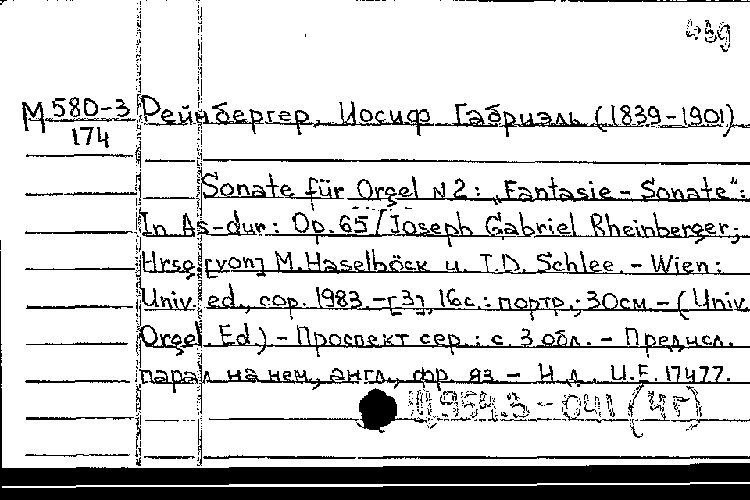 439
М 580-3 Рейнбергер, Иосиф Габриэль (1839-1901)
174
Sonate für Orgel N 2: „Fantasie - Sonate":
In As-dur: Op. 65 / Joseph Gabriel Rheinberger;
Hrsg. [von] M. Haselböck u. T.D. Schlee. - Wien:
Univ. ed., cop. 1983. - [3], 16 с.: портр.; 30 см - (Univ.
Orgel Ed.) - Проспект сер.: с. 3 обл. - Предисл.
парал. на нем., англ., фр. яз. - Н.д. U.E. 17477.
954.3-041 (4г)